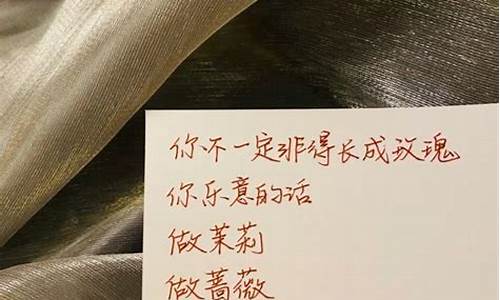 你不一定非得长成玫瑰
你乐意的话
做茉莉
做蔷薇